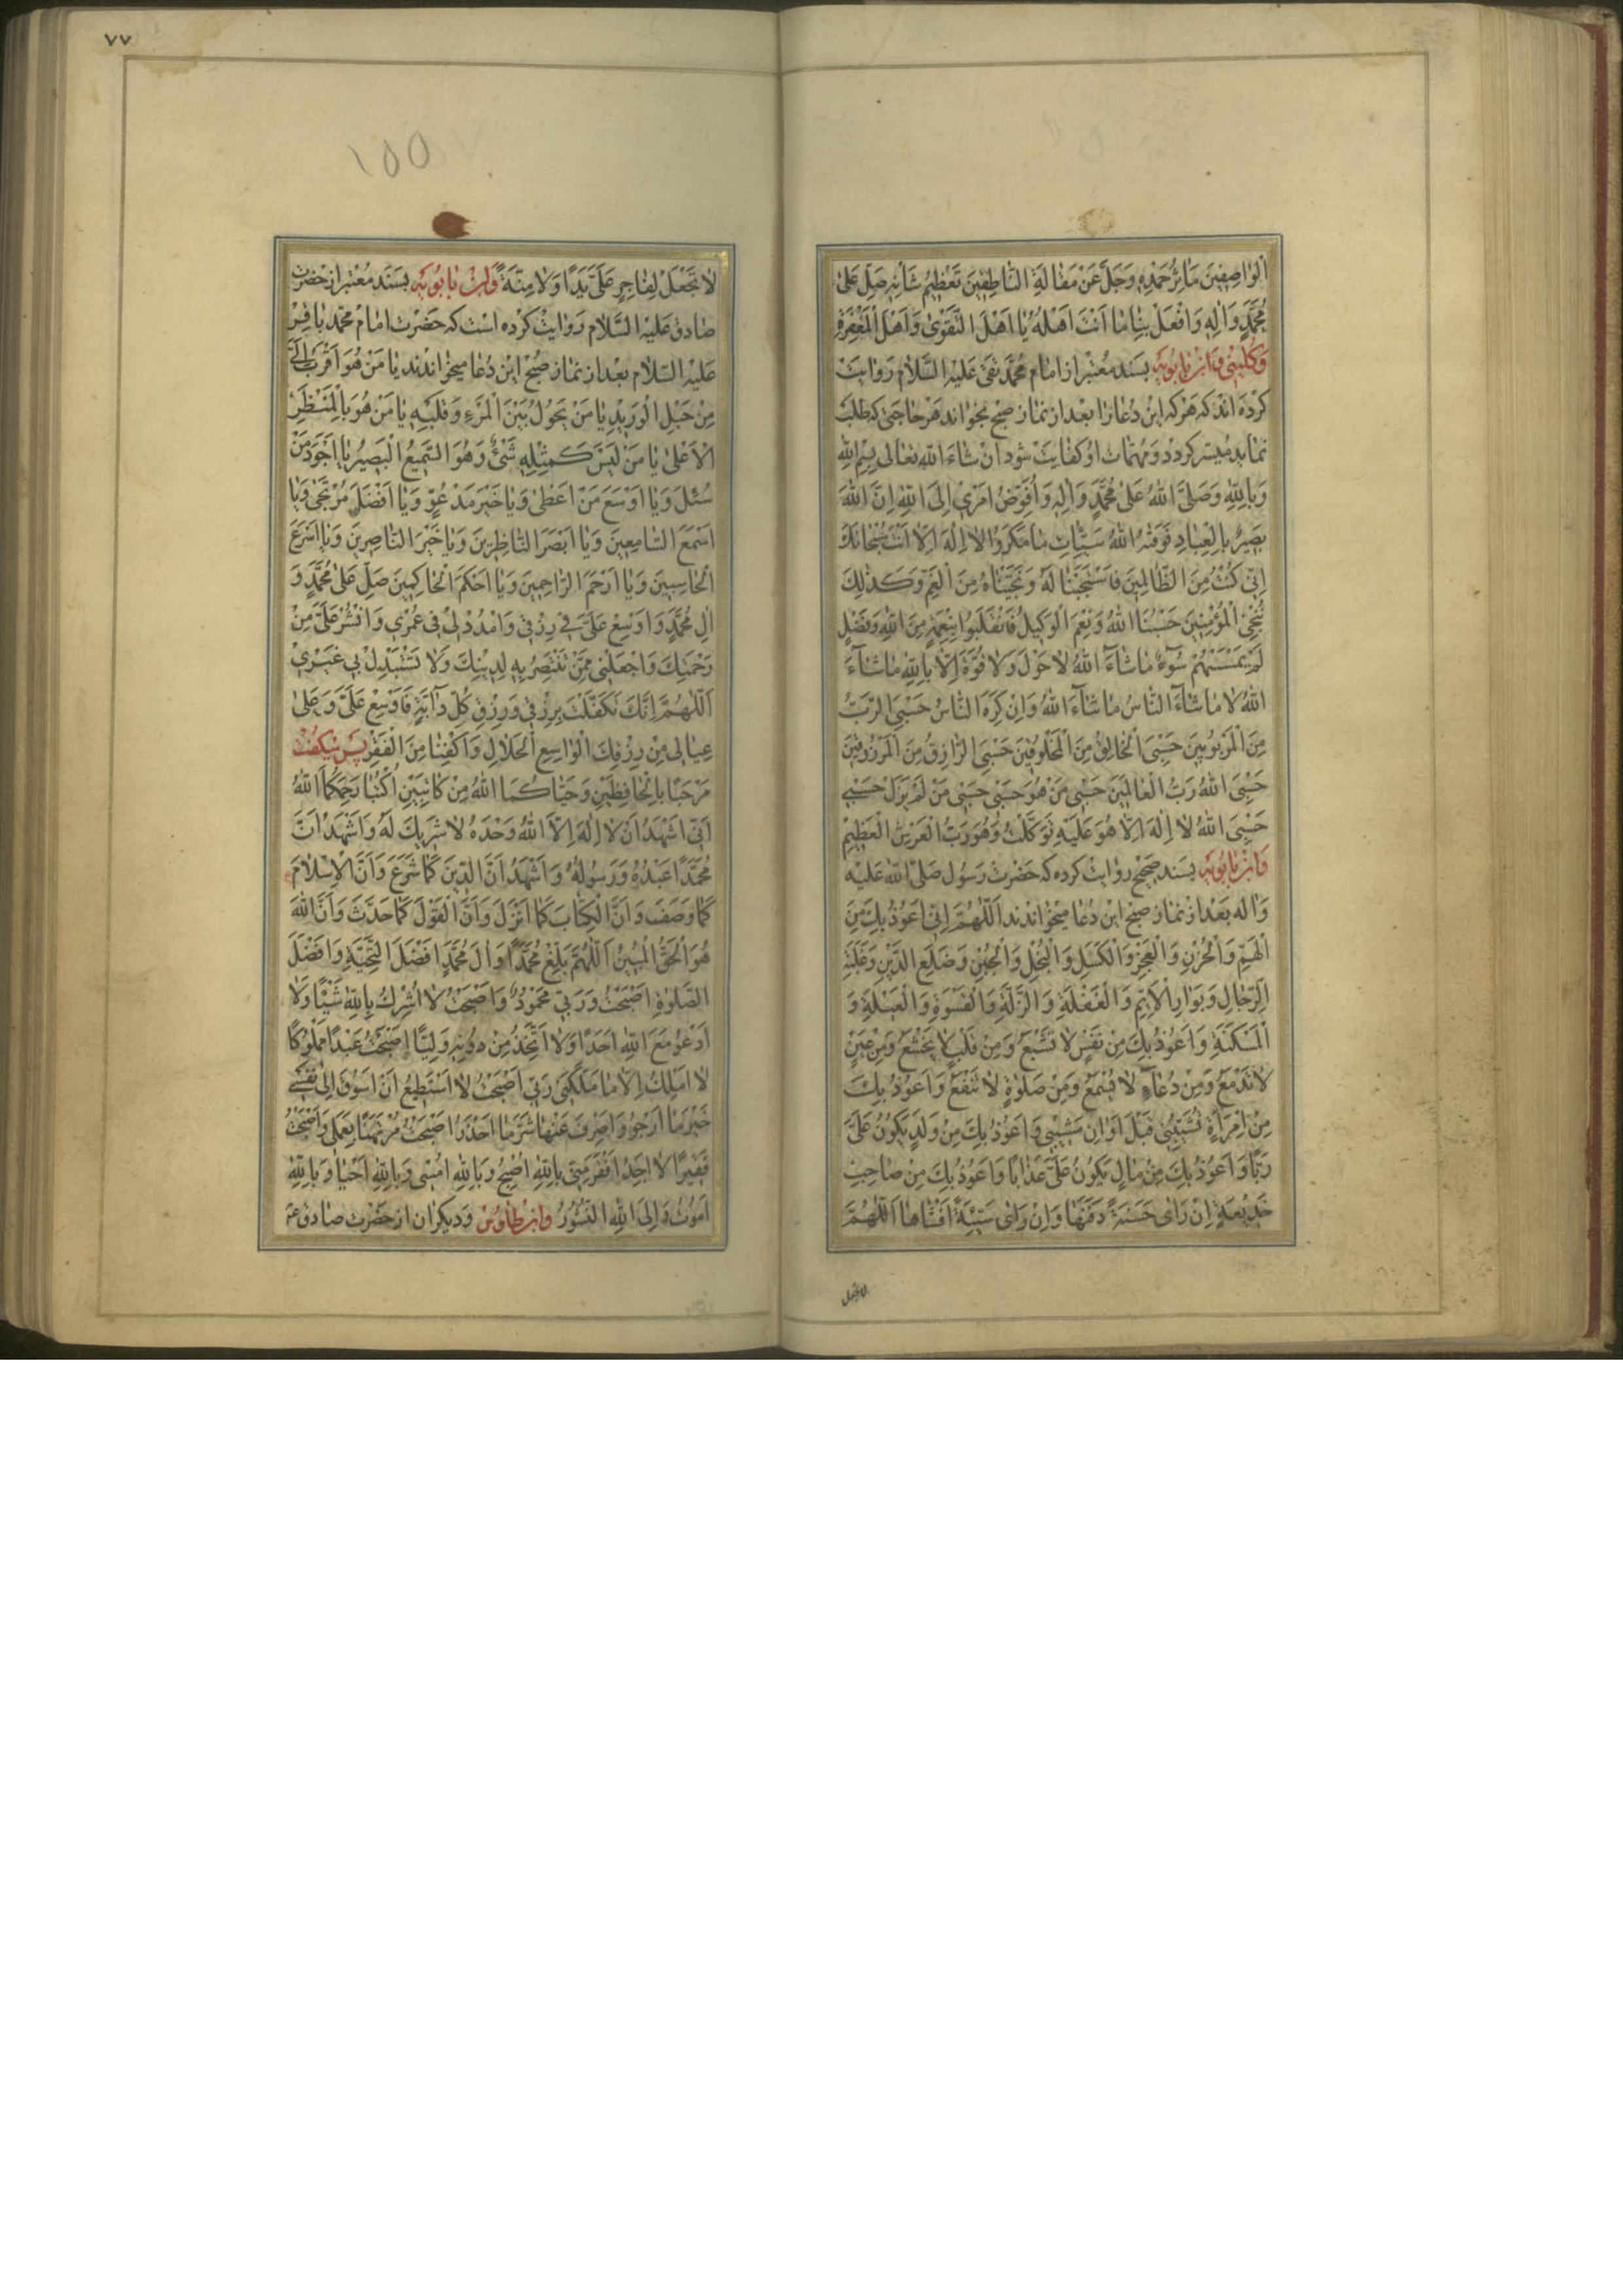 الْوَاصِفِينَ مَآثِرُ حَمْدِهِ وَجَلَّ عَنْ مَقَالَةِ النَّاطِقِينَ تَعْظِيمُ شَأْنِهِ صَلِّ عَلَىٰ
مُحَمَّدٍ وَاٰلِهِ وَافْعَلْ بِنَا مَا اَنْتَ اَهْلُهُ يَا اَهْلَ التَّقْوَىٰ وَاَهْلَ الْمَغْفِرَةِ
وَكُلَيْنِى وَابْنِ بَابُويَه بسند معتبر از امام محمد تقى عَلَيْهِ السَّلَامُ روايت
كرده اند كه هركه اين دعا را بعد از نماز صبح بخواند هر حاجتى كه طلب
نمايد ميسر كردد و مهمات او كفايت شود ان شاء الله تعالى بِسْمِ اللّٰهِ
وَبِاللّٰهِ وَصَلَّى اللّٰهُ عَلٰى مُحَمَّدٍ وَاٰلِهِ وَاُفَوِّضُ اَمْرِى اِلَى اللّٰهِ اِنَّ اللّٰهَ
بَصِيرٌ بِالْعِبَادِ فَوَقٰهُ اللّٰهُ سَيِّئَاتِ مَا مَكَرُوا لَا اِلٰهَ اِلَّا اَنْتَ سُبْحَانَكَ
اِنِّى كُنْتُ مِنَ الظَّالِمِينَ فَاسْتَجَبْنَا لَهُ وَنَجَّيْنَاهُ مِنَ الْغَمِّ وَكَذٰلِكَ
نُنْجِى الْمُؤْمِنِينَ حَسْبُنَا اللّٰهُ وَنِعْمَ الْوَكِيلُ فَانْقَلَبُوا بِنِعْمَةٍ مِنَ اللّٰهِ وَفَضْلٍ
لَمْ يَمْسَسْهُمْ سُوٓءٌ مَا شَآءَ اللّٰهُ لَا حَوْلَ وَلَا قُوَّةَ اِلَّا بِاللّٰهِ مَا شَآءَ
اللّٰهُ لَا مَا شَآءَ النَّاسُ مَا شَآءَ اللّٰهُ وَاِنْ كَرِهَ النَّاسُ حَسْبِىَ الرَّبُّ
مِنَ الْمَرْبُوبِينَ حَسْبِىَ الْخَالِقُ مِنَ الْمَخْلُوقِينَ حَسْبِىَ الرَّازِقُ مِنَ الْمَرْزُوقِينَ
حَسْبِىَ اللّٰهُ رَبُّ الْعَالَمِينَ حَسْبِى مَنْ هُوَ حَسْبِى حَسْبِى مَنْ لَمْ يَزَلْ حَسْبِى
حَسْبِىَ اللّٰهُ لَا اِلٰهَ اِلَّا هُوَ عَلَيْهِ تَوَكَّلْتُ وَهُوَ رَبُّ الْعَرْشِ الْعَظِيمِ
وَابْنِ بَابُويَه بسند صحيح روايت كرده كه حضرت رسول صَلَّى اللّٰهُ عَلَيْهِ
وَاٰلِهِ بعد از نماز صبح اين دعا ميخواندند اَللّٰهُمَّ اِنِّى اَعُوذُ بِكَ مِنَ
الْهَمِّ وَالْحُزْنِ وَالْعَجْزِ وَالْكَسَلِ وَالْبُخْلِ وَالْجُبْنِ وَضَلَعِ الدَّيْنِ وَغَلَبَةِ
الرِّجَالِ وَبَوَارِ الْاَيِّمِ وَالْغَفْلَةِ وَالزَّلَّةِ وَالْقَسْوَةِ وَالْعَيْلَةِ وَ
الْمَسْكَنَةِ وَاَعُوذُ بِكَ مِنْ نَفْسٍ لَا تَشْبَعُ وَمِنْ قَلْبٍ لَا يَخْشَعُ وَمِنْ عَيْنٍ
لَا تَدْمَعُ وَمِنْ دُعَآءٍ لَا يُسْمَعُ وَمِنْ صَلٰوةٍ لَا تَنْفَعُ وَاَعُوذُ بِكَ
مِنْ اِمْرَاَةٍ تُشَيِّبُنِى قَبْلَ اَوَانِ مَشِيبِى وَاَعُوذُ بِكَ مِنْ وَلَدٍ يَكُونُ عَلَىَّ
رَبًّا وَاَعُوذُ بِكَ مِنْ مَالٍ يَكُونُ عَلَىَّ عَذَابًا وَاَعُوذُ بِكَ مِنْ صَاحِبِ
خَدِيعَةٍ اِنْ رَاٰى حَسَنَةً دَفَنَهَا وَاِنْ رَاٰى سَيِّئَةً اَفْشَاهَا اَللّٰهُمَّ
لاتجعل
٧٧
١٥٥
لَا تَجْعَلْ لِفَاجِرٍ عَلَىَّ يَدًا وَلَا مِنَّةً وَابْنِ بَابُويَه بسند معتبر از حضرت
صادق عَلَيْهِ السَّلَامُ روايت كرده است كه حضرت امام محمد باقر
عَلَيْهِ السَّلَامُ بعد از نماز صبح اين دعا ميخواندند يَا مَنْ هُوَ اَقْرَبُ اِلَىَّ
مِنْ حَبْلِ الْوَرِيدِ يَا مَنْ يَحُولُ بَيْنَ الْمَرْءِ وَقَلْبِهِ يَا مَنْ هُوَ بِالْمَنْظَرِ
الْاَعْلٰى يَا مَنْ لَيْسَ كَمِثْلِهِ شَىْءٌ وَهُوَ السَّمِيعُ الْبَصِيرُ يَا اَجْوَدَ مَنْ
سُئِلَ وَيَا اَوْسَعَ مَنْ اَعْطٰى وَيَا خَيْرَ مَدْعُوٍّ وَيَا اَفْضَلَ مُرْتَجٰى وَيَا
اَسْمَعَ السَّامِعِينَ وَيَا اَبْصَرَ النَّاظِرِينَ وَيَا خَيْرَ النَّاصِرِينَ وَيَا اَسْرَعَ
الْحَاسِبِينَ وَيَا اَرْحَمَ الرَّاحِمِينَ وَيَا اَحْكَمَ الْحَاكِمِينَ صَلِّ عَلٰى مُحَمَّدٍ وَ
اٰلِ مُحَمَّدٍ وَاَوْسِعْ عَلَىَّ فِى رِزْقِى وَامْدُدْ لِى فِى عُمْرِى وَانْشُرْ عَلَىَّ مِنْ
رَحْمَتِكَ وَاجْعَلْنِى مِمَّنْ تَنْتَصِرُ بِهِ لِدِينِكَ وَلَا تَسْتَبْدِلْ بِى غَيْرِى
اَللّٰهُمَّ اِنَّكَ تَكَفَّلْتَ بِرِزْقِى وَرِزْقِ كُلِّ دَآبَّةٍ فَاَوْسِعْ عَلَىَّ وَعَلٰى
عِيَالِى مِنْ رِزْقِكَ الْوَاسِعِ الْحَلَالِ وَاكْفِنَا مِنَ الْفَقْرِ پس ميكفت
مَرْحَبًا بِالْحَافِظَيْنِ وَحَيَّاكُمَا اللّٰهُ مِنْ كَاتِبَيْنِ اُكْتُبَا رَحِمَكُمَا اللّٰهُ
اَنِّى اَشْهَدُ اَنْ لَا اِلٰهَ اِلَّا اللّٰهُ وَحْدَهُ لَا شَرِيكَ لَهُ وَاَشْهَدُ اَنَّ
مُحَمَّدًا عَبْدُهُ وَرَسُولُهُ وَاَشْهَدُ اَنَّ الدِّينَ كَمَا شَرَعَ وَاَنَّ الْاِسْلَامَ
كَمَا وَصَفَ وَاَنَّ الْكِتَابَ كَمَا اَنْزَلَ وَاَنَّ الْقَوْلَ كَمَا حَدَّثَ وَاَنَّ اللّٰهَ
هُوَ الْحَقُّ الْمُبِينُ اَللّٰهُمَّ بَلِّغْ مُحَمَّدًا وَاٰلَ مُحَمَّدٍ اَفْضَلَ التَّحِيَّةِ وَاَفْضَلَ
الصَّلٰوةِ اَصْبَحْتُ وَرَبِّى مَحْمُودٌ وَاَصْبَحْتُ لَا اُشْرِكُ بِاللّٰهِ شَيْئًا وَلَا
اَدْعُو مَعَ اللّٰهِ اَحَدًا وَلَا اَتَّخِذُ مِنْ دُونِهِ وَلِيًّا اَصْبَحْتُ عَبْدًا مَمْلُوكًا
لَا اَمْلِكُ اِلَّا مَا مَلَّكَنِى رَبِّى اَصْبَحْتُ لَا اَسْتَطِيعُ اَنْ اَسُوقَ اِلٰى نَفْسِى
خَيْرَ مَا اَرْجُو وَاَصْرِفَ عَنْهَا شَرَّ مَا اَحْذَرُ اَصْبَحْتُ مُرْتَهَنًا بِعَمَلِى وَاَصْبَحْتُ
فَقِيرًا لَا اَجِدُ اَفْقَرَ مِنِّى بِاللّٰهِ اُصْبِحُ وَبِاللّٰهِ اُمْسِى وَبِاللّٰهِ اَحْيَا وَبِاللّٰهِ
اَمُوتُ وَاِلَى اللّٰهِ النُّشُورُ وَابْنِ طَاوُس وديكران از حضرت صادق ع